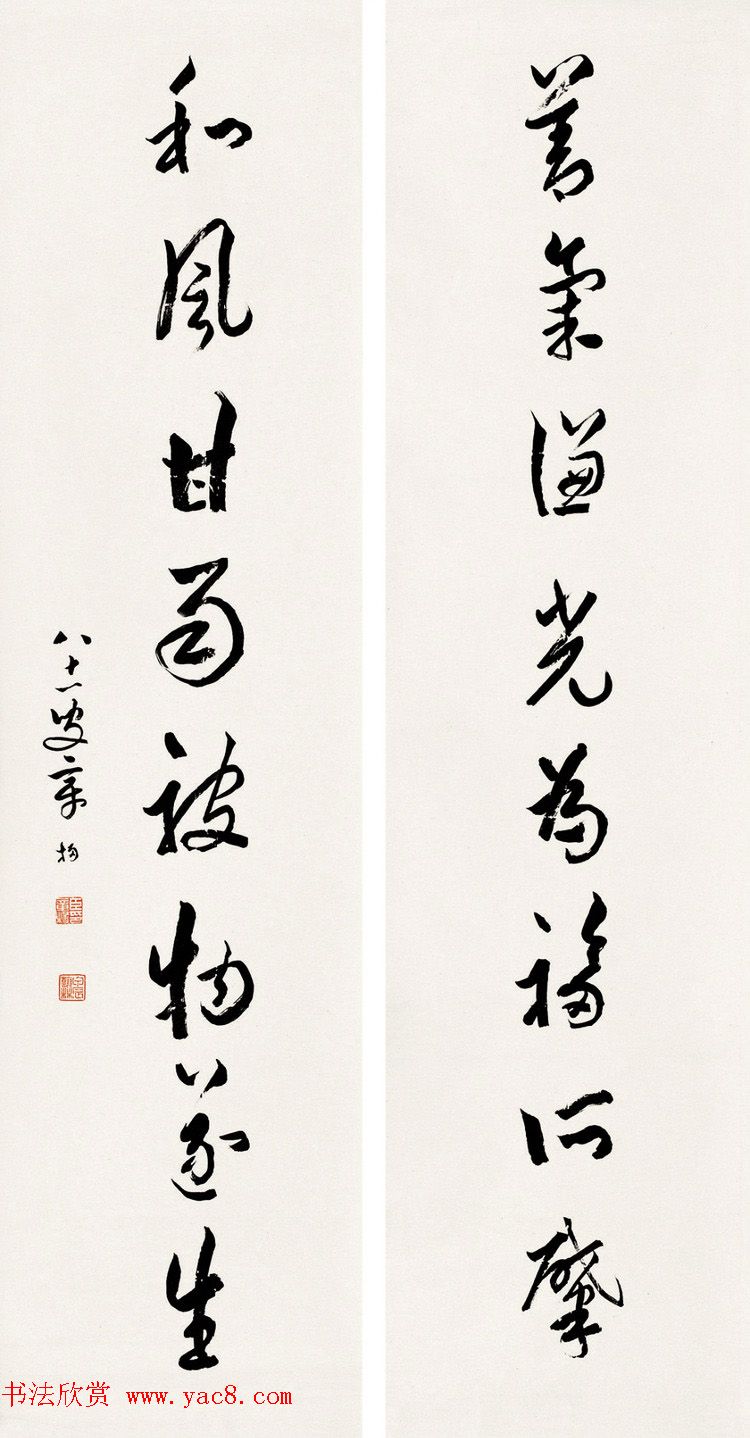 善氣謙光為福所肇
和風甘雨被物遂生
八十一叟章梫
书法欣赏 www.yac8.com